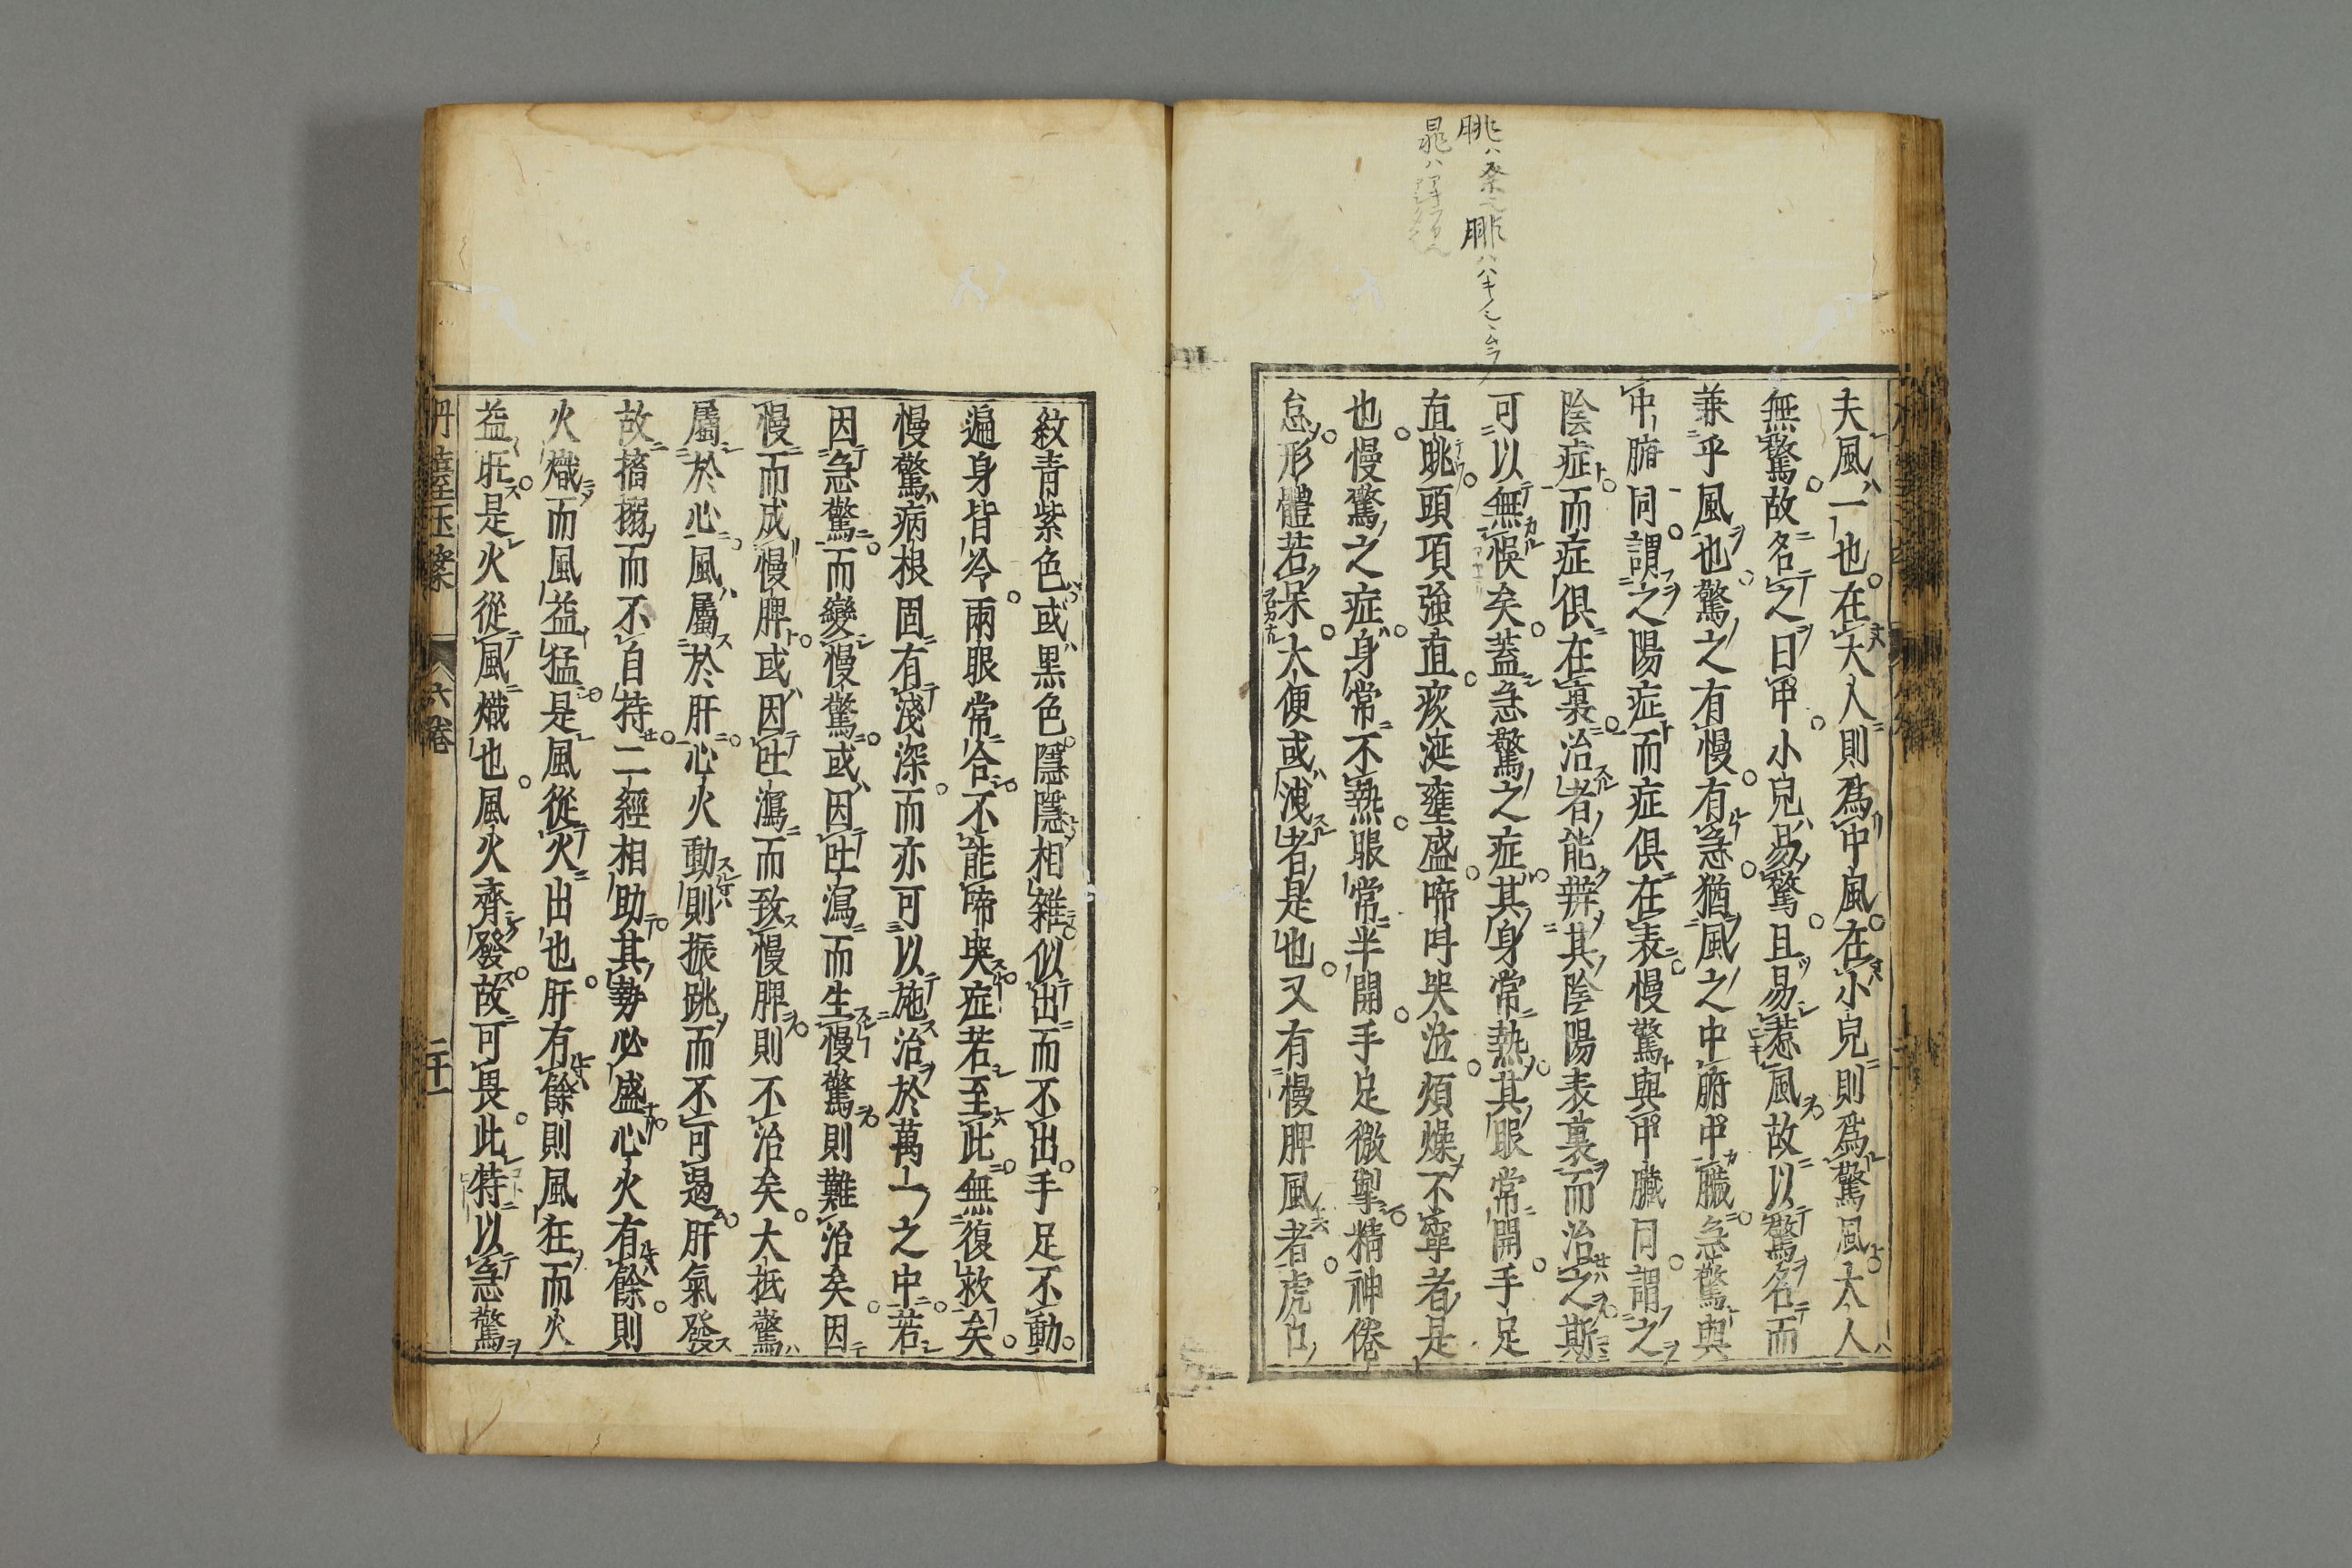 夫風一也在大人則爲中風在小兒則爲驚風大人
無驚故名之曰中小兒易驚且易惹風故以驚名而
兼乎風也驚之有慢有急猶風之中腑中臓急驚與
中腑同謂之陽症而症俱在表慢驚與中臓同謂之
陰症而症俱在裏治者能辨其陰陽表裏而治之斯
可以無悞矣蓋急驚之症其身常熱其眼常開手足
直眺頭項強直痰涎壅盛啼呌哭泣煩燥不寧者是
也慢驚之症身常不熱眼常半開手足微掣精神倦
怠形體若呆大便或洩者是也又有慢脾風者虎口
紋青紫色或黒色隱隱相雜似出而不出手足不動
遍身皆冷兩眼常合不能啼哭症若至此無復救矣
慢驚病根固有淺深而亦可以施治於萬一之中若
因急驚而變慢驚或因吐瀉而生慢驚則難治矣因
慢而成慢脾或因吐瀉而致慢脾則不治矣大抵驚
屬於心風屬於肝心火動則振跳而不可遏肝氣發
故搐搦而不自持二經相助其勢必盛心火有餘則
火熾而風益猛是風從火出也肝有餘則風狂而火
益旺是火從風熾也風火齊發故可畏此特以急驚
六卷
二十一